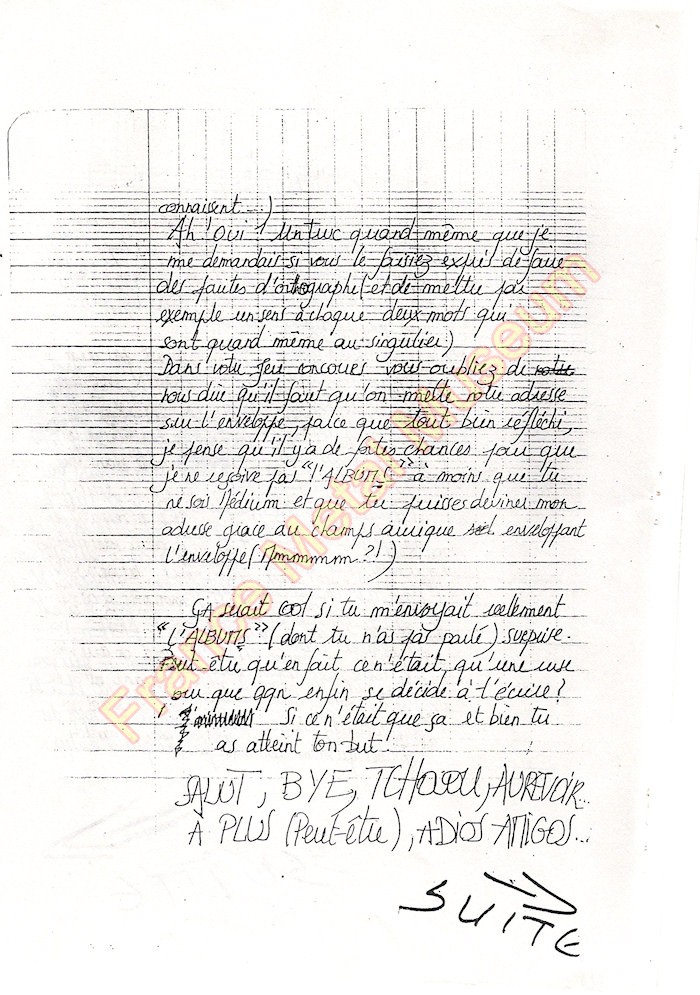 connaissent...)
Ah ! Oui ! Un truc quand même que je
me demandais si vous le faisiez exprès de faire
des fautes d'orthographe (et de mettre par
exemple un sens à chaque deux mots qui
sont quand même au singulier)
Dans votre jeu concours vous oubliez de
nous dire qu'il faut qu'on mette notre adresse
sur l'enveloppe, parce que tout bien réfléchi,
je pense qu'il y a de fortes chances pour que
je ne reçoive pas "l'ALBUMS" à moins que tu
ne sois Médium et que tu puisses deviner mon
adresse grace au champs enveloppant
l'enveloppe (Mmmmmm ?!)
ÇA serait cool si tu m'envoyait reellement
"L'ALBUMS" (dont tu n'as pas parlé) surprise.
Peut-être qu'en fait ce n'était qu'une ruse
pour que qqn enfin se décide à t'écrire ?
Si ce n'était que ça et bien tu
as atteint ton but !
SALUT, BYE, TCHAOU, AUREVOIR...
À PLUS (Peut-être), ADIOS AMIGOS...
SUITE
France Metal Museum